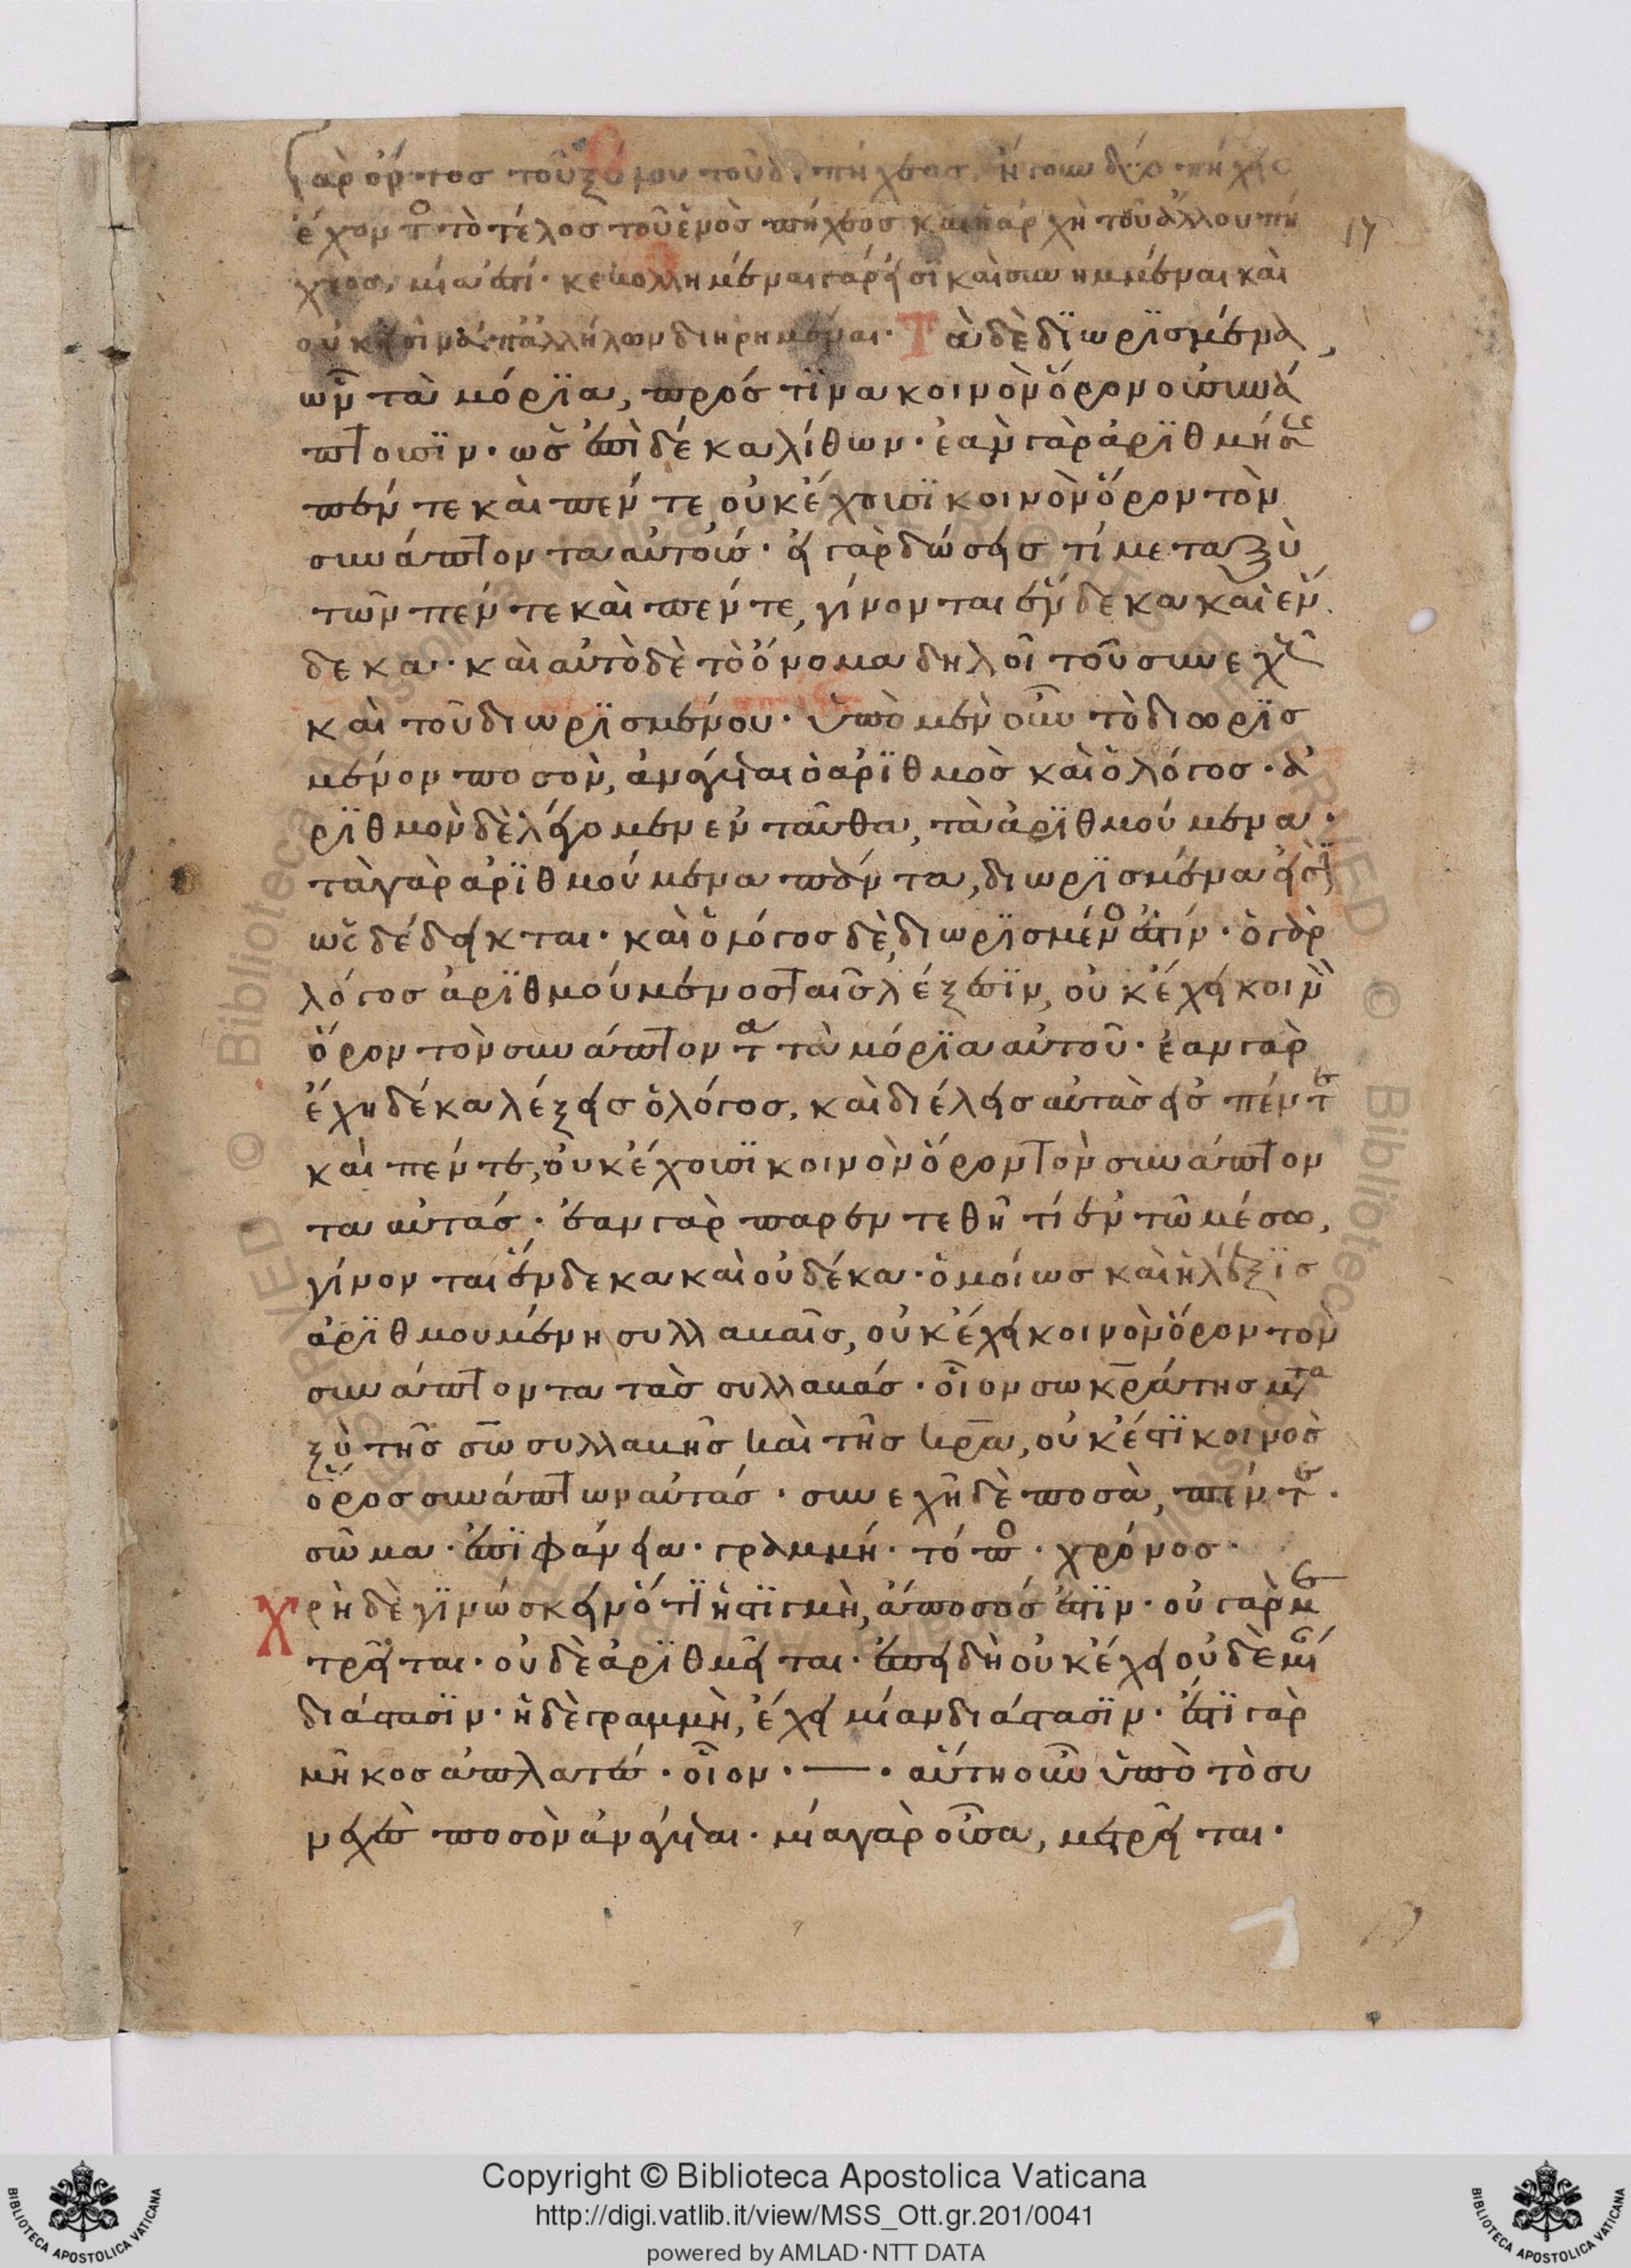 γὰρ ὄντος τοῦ ξύλου τοῦ δι πήχεος, ἤγουν δύο πήχεις
ἔχοντος τὸ τέλος τοῦ ἑνὸς πήχεος καὶ ἡ ἀρχὴ τοῦ ἄλλου πή
17
χεος, μία ἐστί· κεκολλημέναι γάρ εἰσι καὶ συνημμέναι καὶ
οὐκ εἰσὶν ἀπ' ἀλλήλων διηρημέναι· Τὰ δὲ διωρισμένα,
ὧν τὰ μόρια, πρός τινα κοινὸν ὅρον οὐ συνά
πτουσιν· ὡς ἐπὶ δέκα λίθων· ἐὰν γὰρ ἀριθμήσῃς
πέντε καὶ πέντε, οὐκ ἔχουσι κοινὸν ὅρον τὸν
συνάπτοντα αὐτούς· εἰ γὰρ δώσεις τί μεταξὺ
τῶν πέντε καὶ πέντε, γίνονται ἕνδεκα καὶ ἕν
δεκα· καὶ αὐτὸ δὲ τὸ ὄνομα δηλοῖ τοῦ συνεχοῦς
καὶ τοῦ διωρισμένου· ὑπὸ μὲν οὖν τὸ διωρισ
μένον ποσὸν, ἀνάγεται ὁ ἀριθμὸς καὶ ὁ λόγος· ἀ
ριθμὸν δὲ λέγομεν ἐνταῦθα, τὰ ἀριθμούμενα·
τὰ γὰρ ἀριθμούμενα πάντα, διωρισμένα εἰσὶ,
ὡς δέδεικται· καὶ ὁ λόγος δὲ, διωρισμένος ἐστίν· ὁ γὰρ
λόγος ἀριθμούμενος ταῖς λέξεσιν, οὐκ ἔχει κοινὸν
ὅρον τὸν συνάπτοντα τὰ μόρια αὐτοῦ· ἐὰν γὰρ
ἔχῃ δέκα λέξεις ὁ λόγος, καὶ διέλῃς αὐτὰς εἰς πέντε
καὶ πέντε, οὐκ ἔχουσι κοινὸν ὅρον τὸν συνάπτον
τα αὐτάς· ἐὰν γὰρ παρεντεθῇ τί ἐν τῶ μέσω,
γίνονται ἕνδεκα καὶ οὐ δέκα· ὁμοίως καὶ ἡ λέξις
ἀριθμουμένη συλλαβαῖς, οὐκ ἔχει κοινὸν ὅρον τὸν
συνάπτοντα τὰς συλλαβάς· οἷον σωκράτης μετα
ξὺ τῆς σω συλλαβῆς καὶ τῆς κρα, οὐκ ἔστι κοινὸς
ὅρος συνάπτων αὐτάς· συνεχῆ δὲ ποσὰ, πέντε·
σῶμα· ἐπιφάνεια· γραμμή· τόπος· χρόνος·
Χρὴ δὲ γινώσκειν ὅτι ἡ στιγμὴ, ἄποσός ἐστιν· οὐ γὰρ με
τρεῖται· οὐδὲ ἀριθμεῖται· ἐπειδὴ οὐκ ἔχει οὐδεμίαν
διάστασιν· ἡ δὲ γραμμὴ, ἔχει μίαν διάστασιν· ἔστι γὰρ
μῆκος ἀπλατές· οἷον· — · αὕτη οὖν ὑπὸ τὸ συ
νεχὲς ποσὸν ἀνάγεται· μία γὰρ οὖσα, μετρεῖται·
Copyright © Biblioteca Apostolica Vaticana
http://digi.vatlib.it/view/MSS_Ott.gr.201/0041
powered by AMLAD·NTT DATA